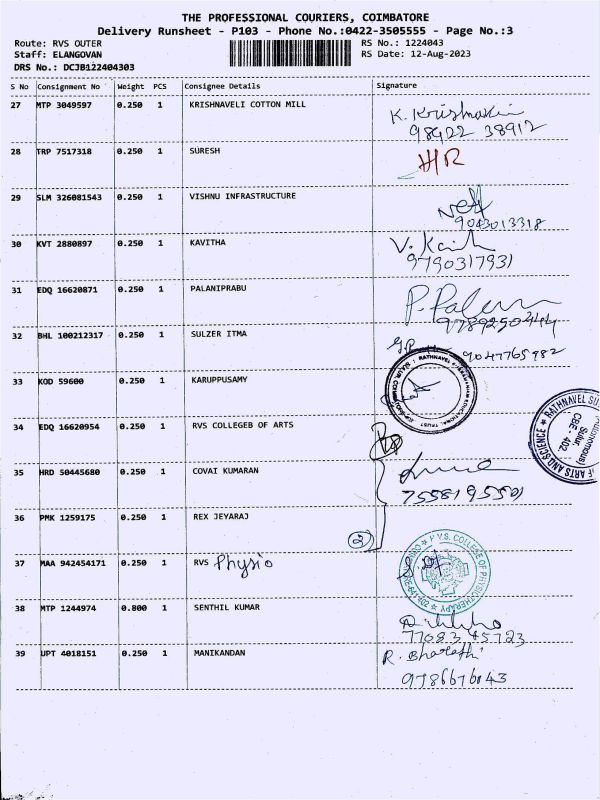 THE PROFESSIONAL COURIERS, COIMBATORE
Delivery Runsheet - P103 - Phone No.:0422-3505555 - Page No.:3
Route: RVS OUTER RS No.: 1224043
Staff: ELANGOVAN RS Date: 12-Aug-2023
DRS No.: DCJB122404303
S No Consignment No Weight PCS Consignee Details Signature
27 MTP 3049597 0.250 1 KRISHNAVELI COTTON MILL
98422 38912
28 TRP 7517318 0.250 1 SURESH
29 SLM 326081543 0.250 1 VISHNU INFRASTRUCTURE
9043013318
30 KVT 2880897 0.250 1 KAVITHA
9790317931
31 EDQ 16620871 0.250 1 PALANIPRABU
32 BHL 100212317 0.250 1 SULZER ITMA
9047765982
33 KOD 59600 0.250 1 KARUPPUSAMY
34 EDQ 16620954 0.250 1 RVS COLLEGEB OF ARTS
RATHNAVEL
(Autonomous)
Sulur,
CBE - 402
F ARTS AND SCIENCE
35 HRD 50445680 0.250 1 COVAI KUMARAN
7558195501
36 PMK 1259175 0.250 1 REX JEYARAJ
2
37 MAA 942454171 0.250 1 RVS Physio
V.S. COLLEGE OF PHYSIOTHERAPY
38 MTP 1244974 0.800 1 SENTHIL KUMAR
77083 45723
39 UPT 4018151 0.250 1 MANIKANDAN
R. Bharathi
9786676043